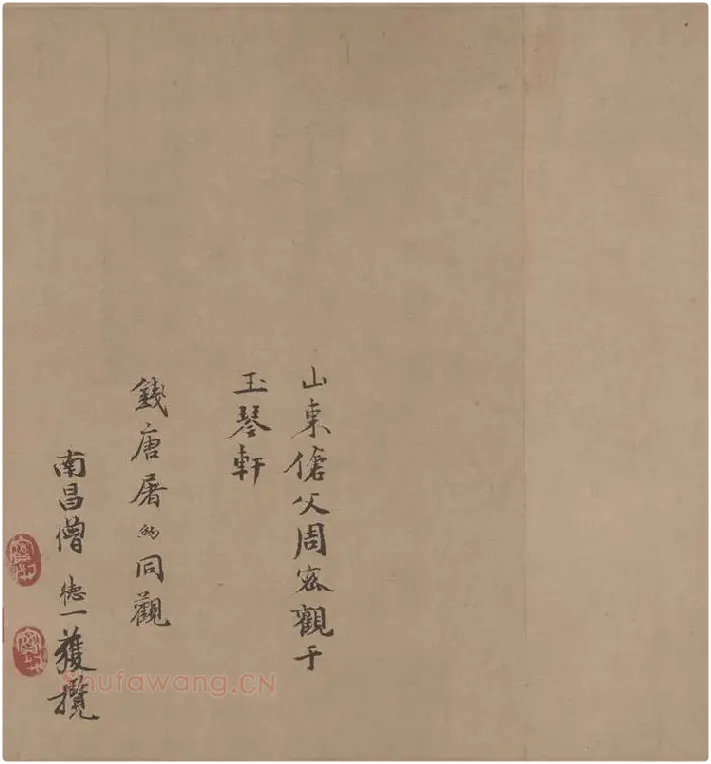 山東傖父周宻觀于
玉琴軒
錢唐屠約同觀
南昌僧德一獲攬
shufawang.CN